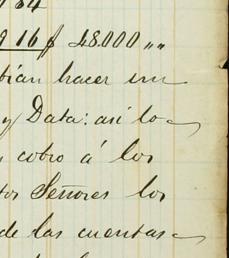 9 16 $ 48.000 ,,
bían hacer un
y Data: así lo
cobro á los
tos Señores los
de las cuentas